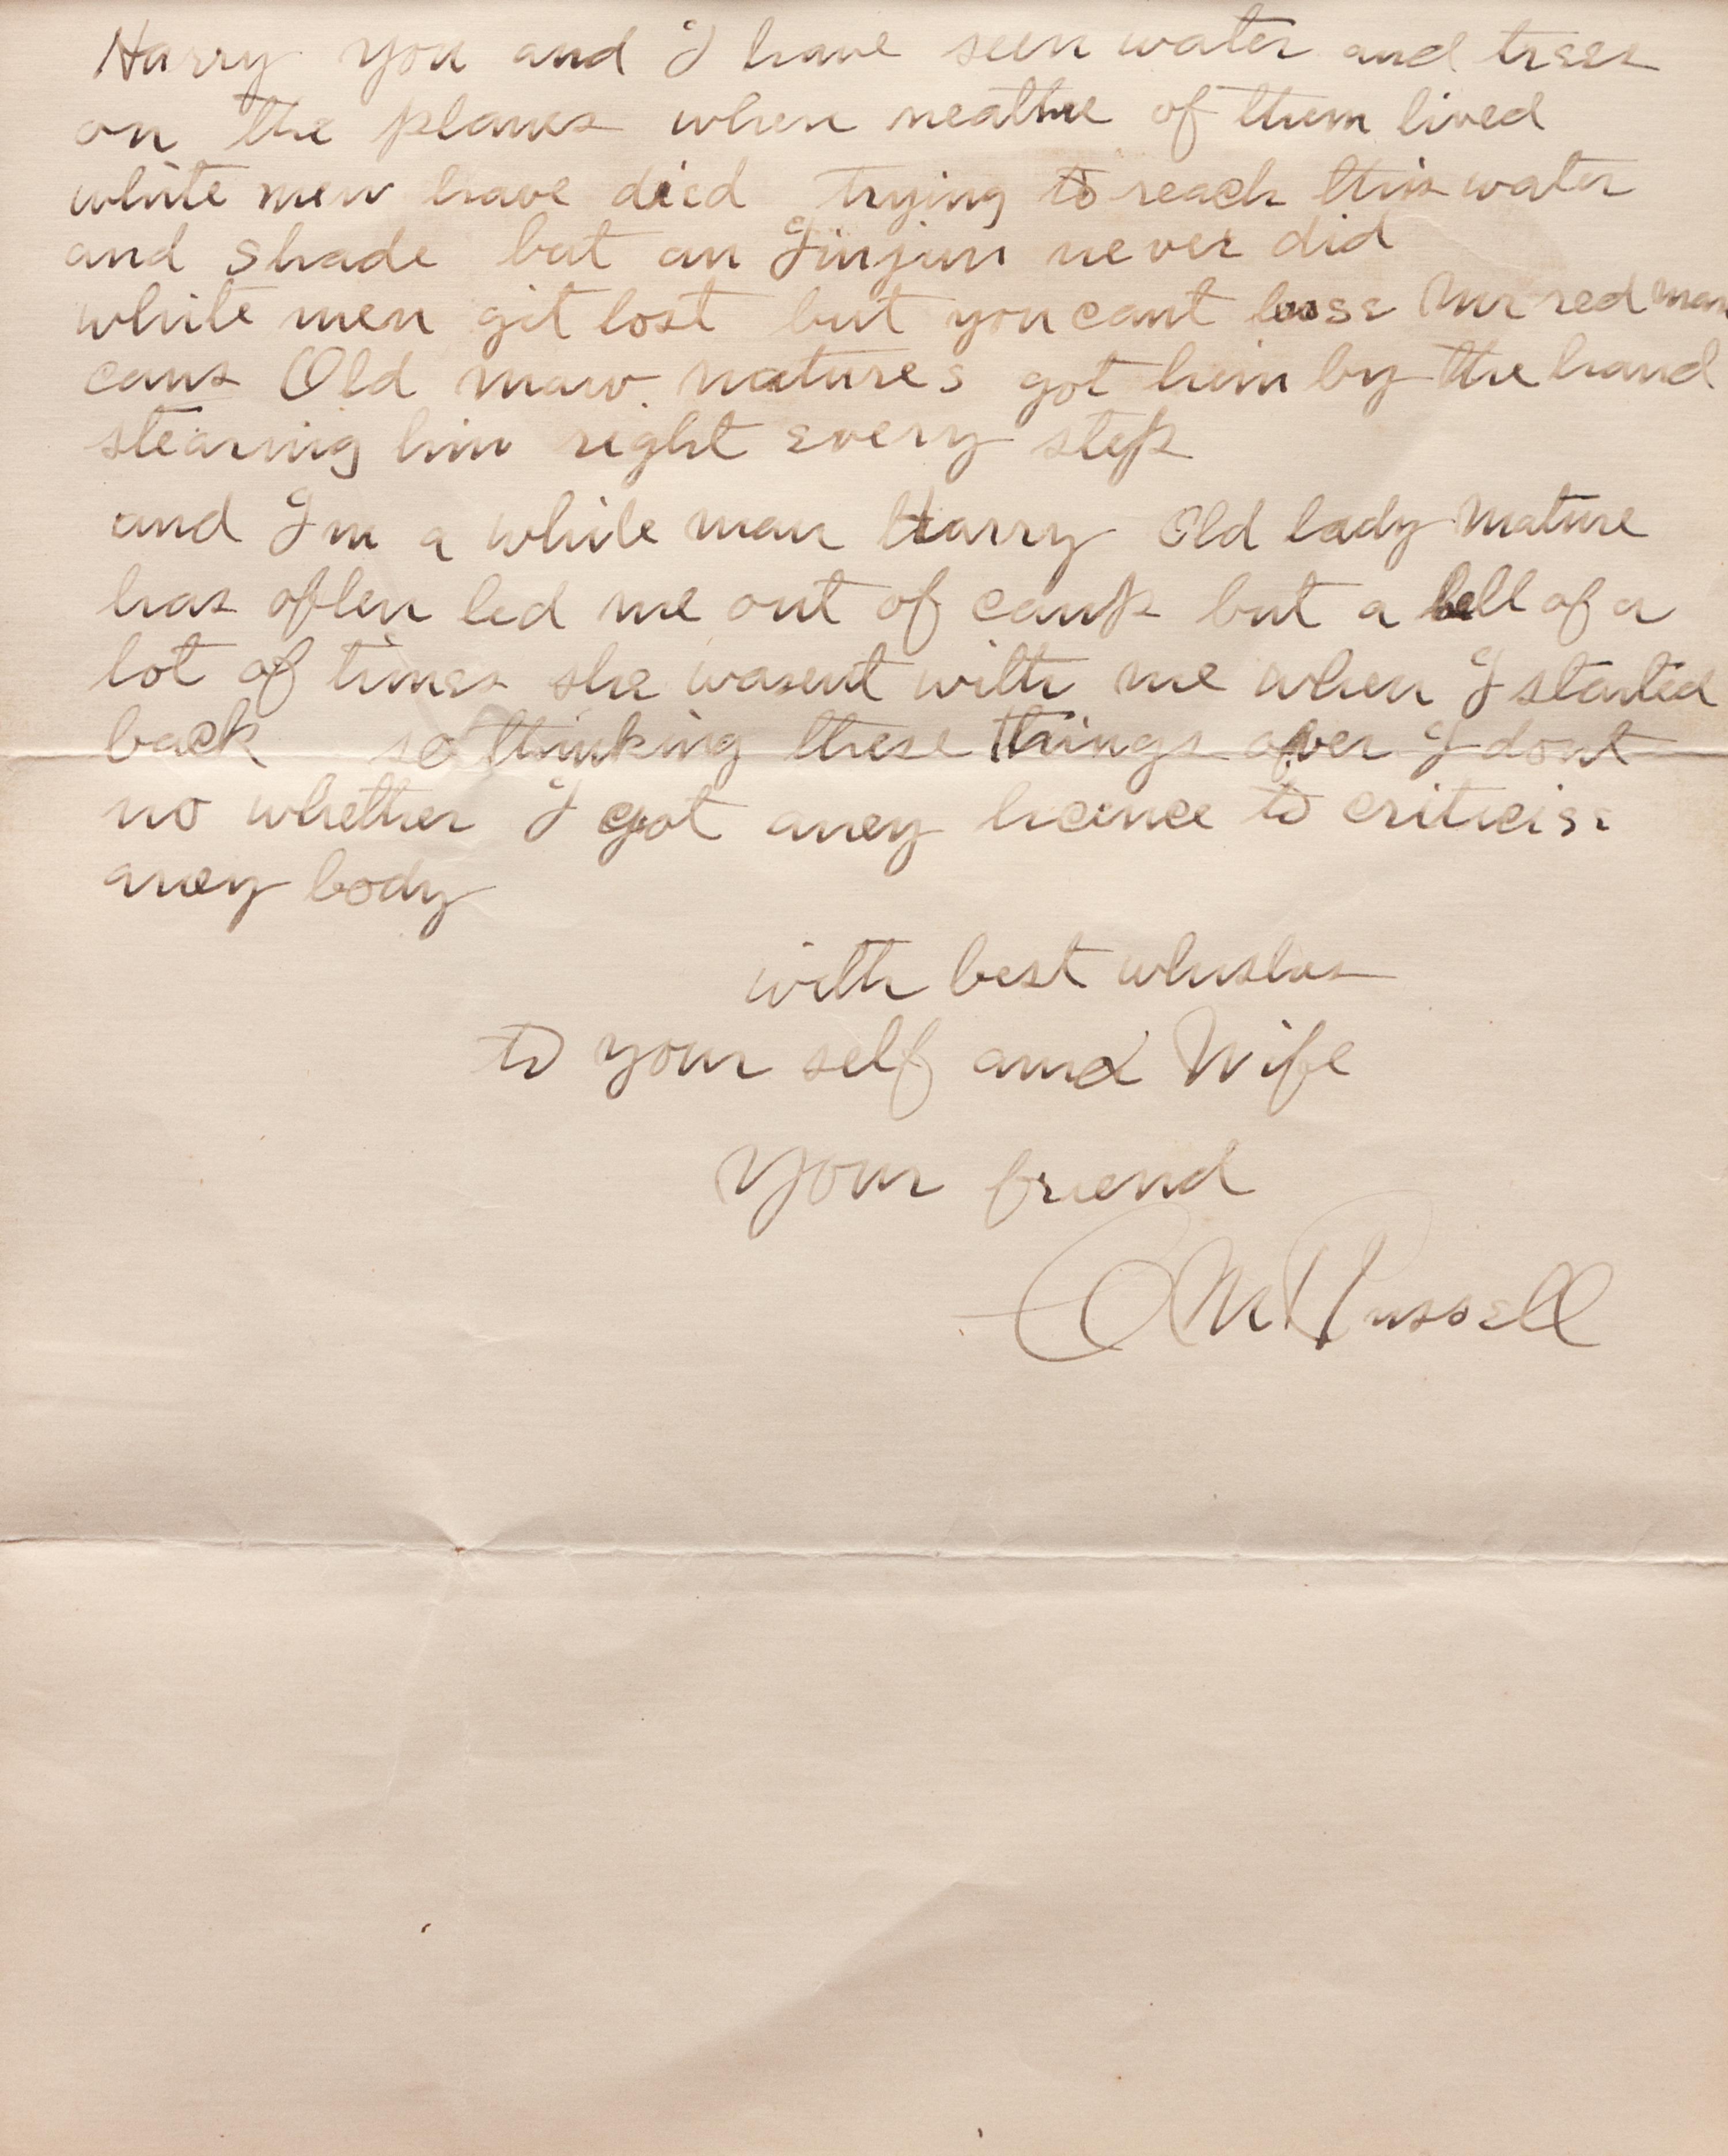 Harry you and I have seen water and trees
on the planes when neathe of them lived
white men have died trying to reach this water
and shade but an Injun never did
white men git lost but you cant loose Mr red man
caus Old maw natures got him by the hand
stearing him right every step
and Im a white man Harry Old lady Nature
has often led me out of camp but a hell of a
lot of times she wasent with me when I started
back so thinking these things over I dont
no whether I got aney licence to criticise
aney body
with best whishes
to your self and Wife
Your friend
CM Russell